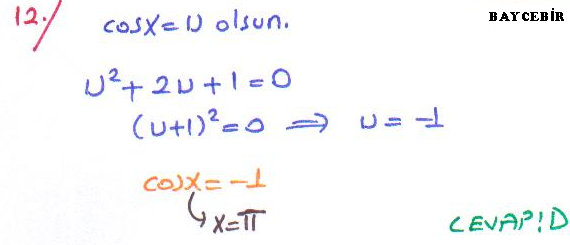 12./ cosx = U olsun.
BAYCEBİR
U² + 2U + 1 = 0
(U+1)² = 0 ⟹ U = -1
cosx = -1
↳ x = π
CEVAP: D